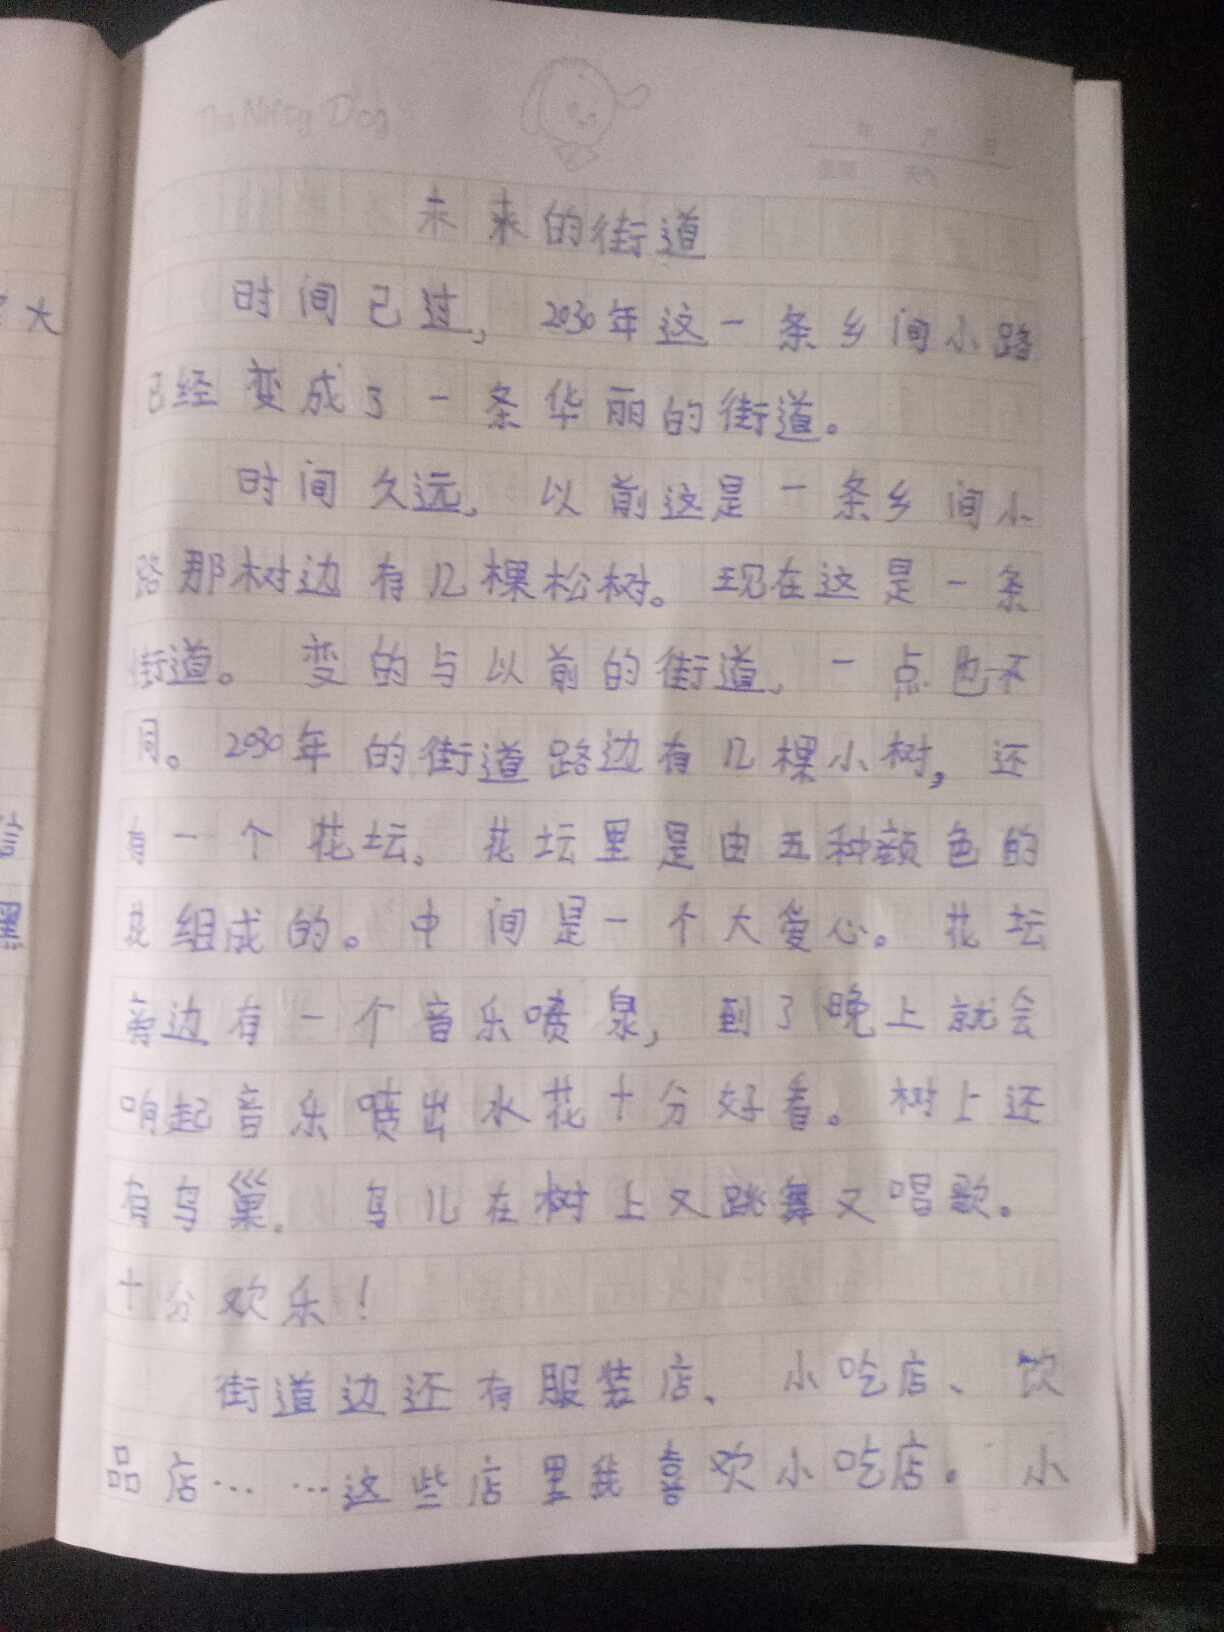 The Nifty Dog
年 月 日
未来的街道
时间已过，2030年这一条乡间小路
已经变成了一条华丽的街道。
时间久远，以前这是一条乡间小
路那树边有几棵松树。现在这是一条
街道。变的与以前的街道，一点也不
同。2030年的街道路边有几棵小树，还
有一个花坛。花坛里是由五种颜色的
花组成的。中间是一个大爱心。花坛
旁边有一个音乐喷泉，到了晚上就会
响起音乐喷出水花十分好看。树上还
有鸟巢。鸟儿在树上又跳舞又唱歌。
十分欢乐！
街道边还有服装店、小吃店、饮
品店……这些店里我喜欢小吃店。小